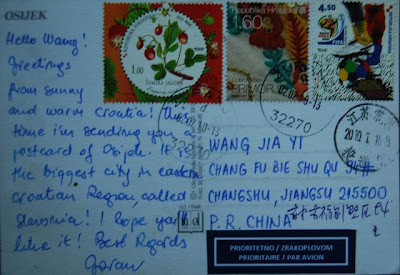 OSIJEK
Hello Wang!
Greetings
from sunny
and warm Croatia! This
time i'm sending you a
postcard of Osijek. It is
the biggest city in eastern
Croatian Region, called
Slavonia! I hope you'll
like it! Best Regards
Goran
1.00
ŠUMSKA JAGODA
Republika Hrvatska
1.60
PRIMORJE
4.50
FIFA
32270
WANG JIA YI
CHANG FU BIE SHU QU 34#
CHANGSHU, JIANGSU 215500
P.R. CHINA
PRIORITETNO / ZRAKOPLOVOM
PRIORITAIRE / PAR AVION
江苏